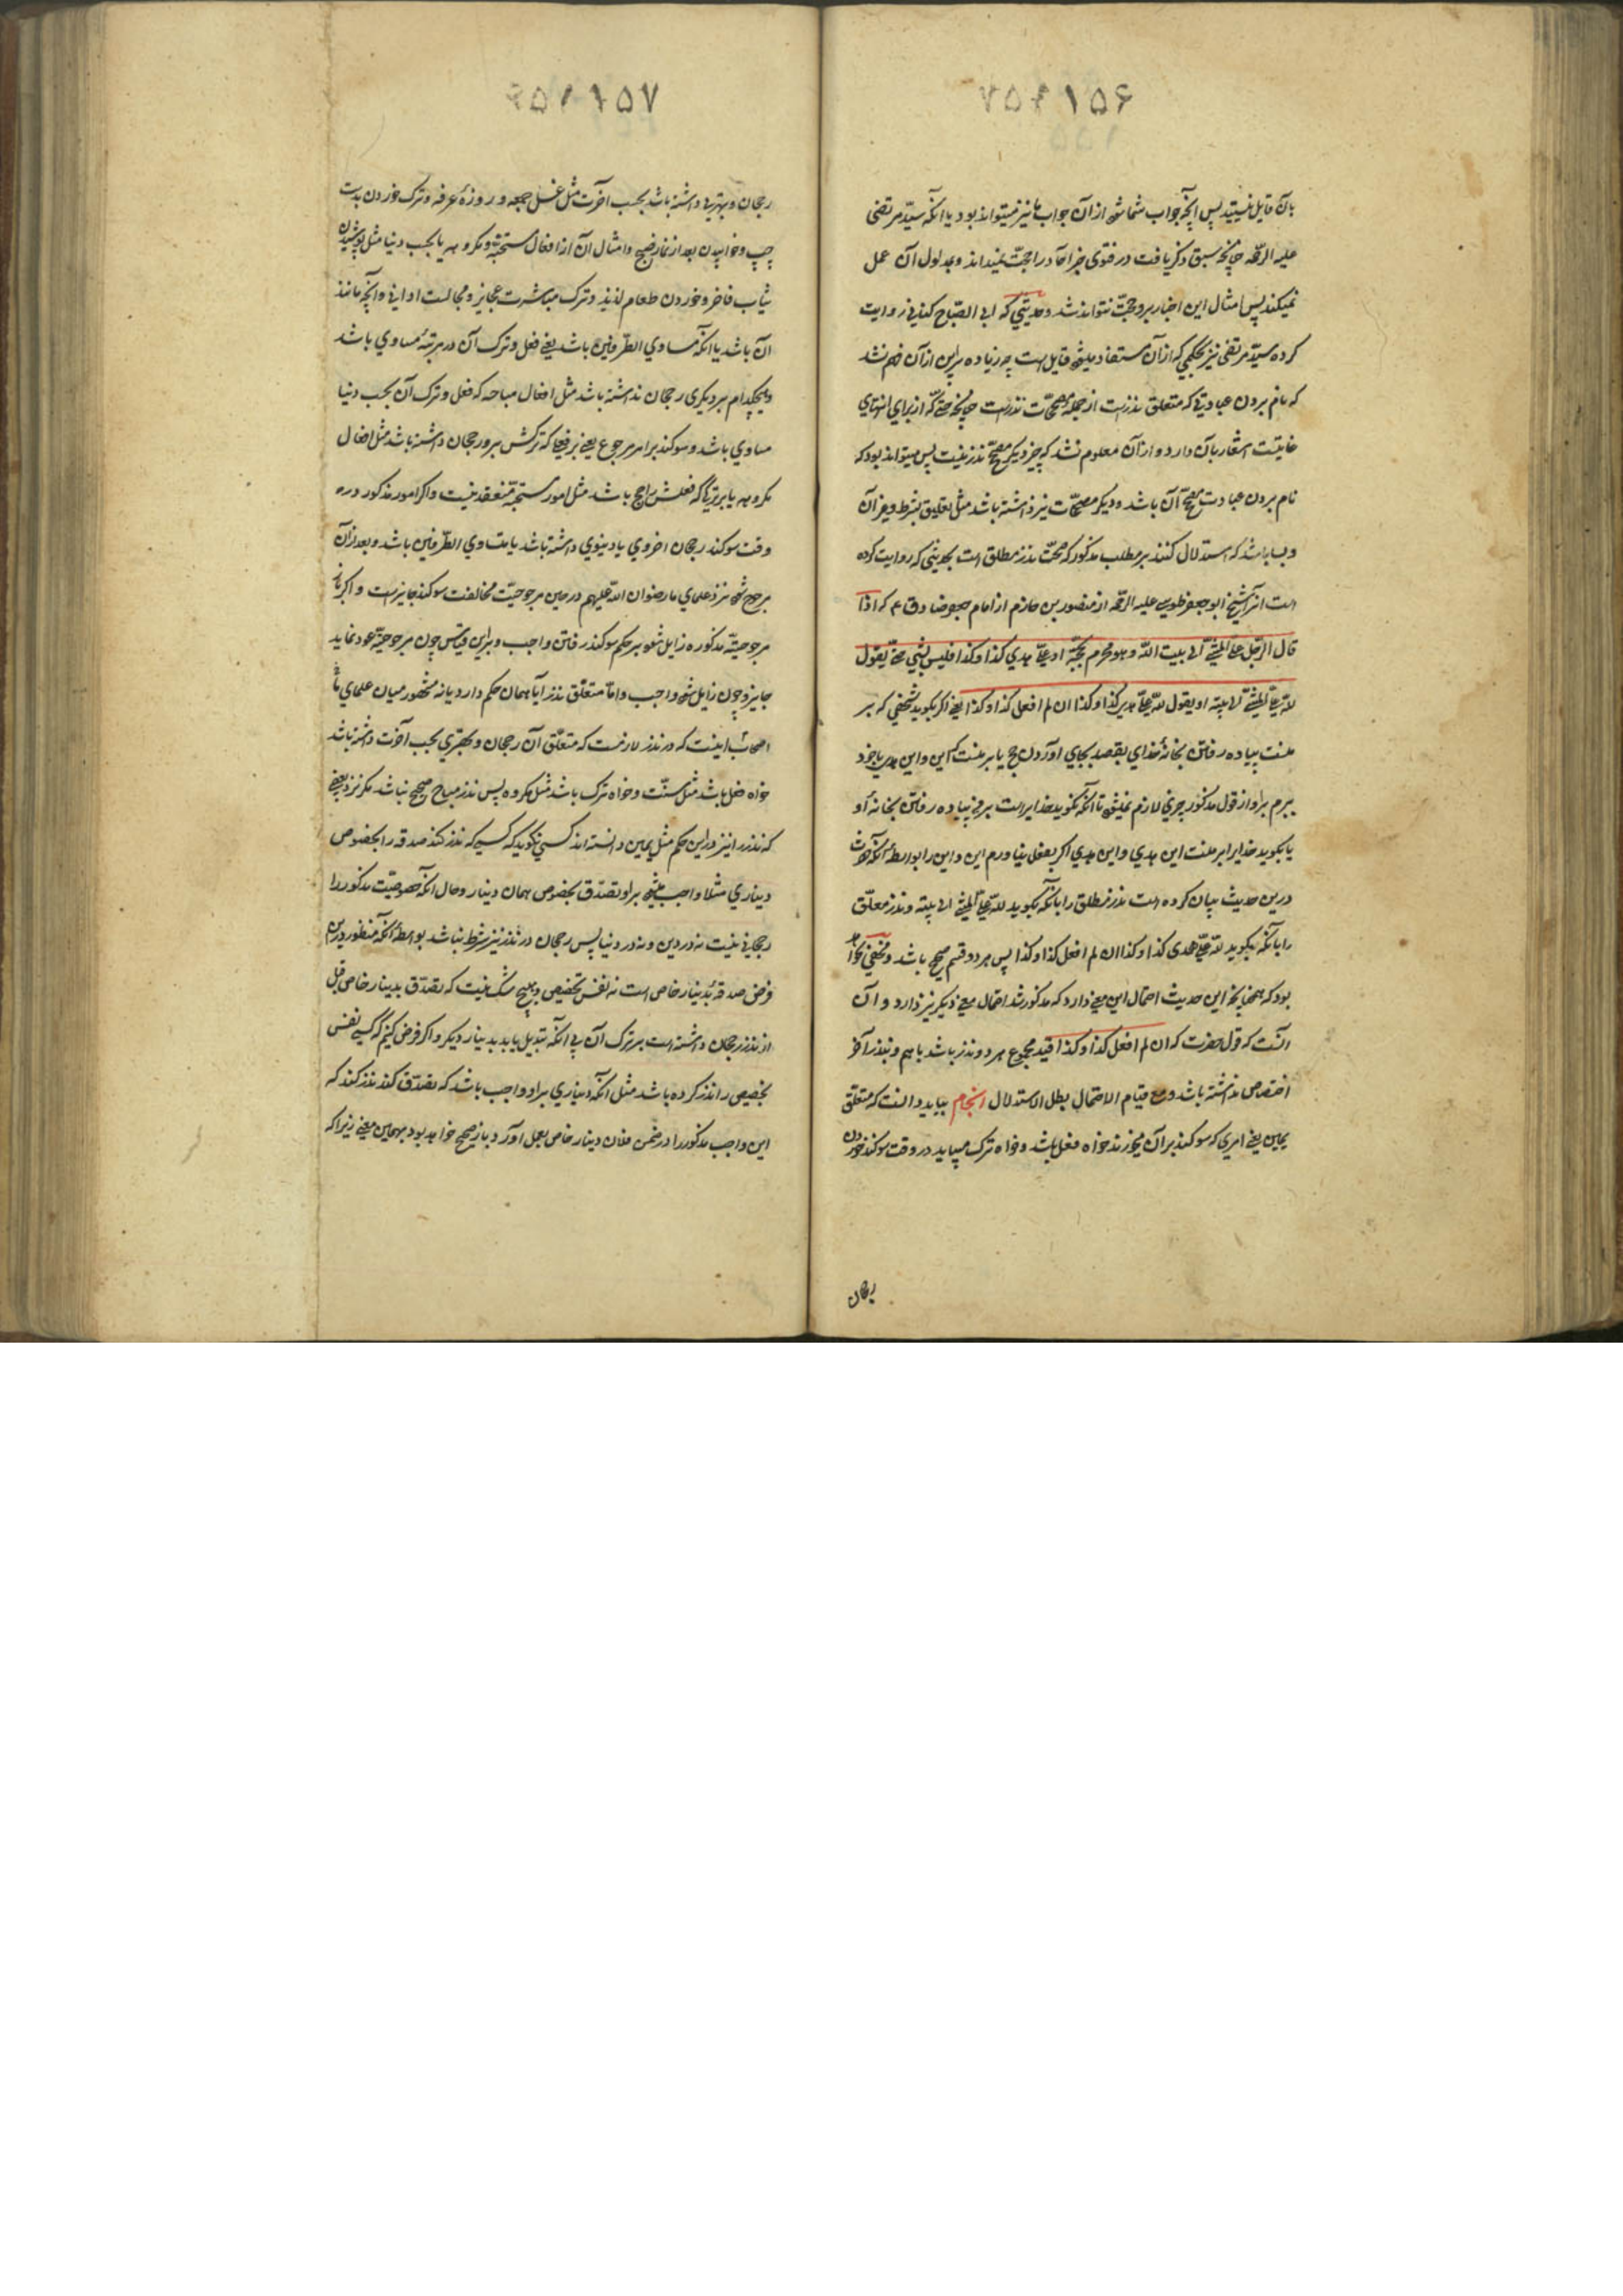 ۱۵۶
بآن قایل نیستید پس آنچه جواب شما شود از آن جواب ما نیز میتواند بود یا آنکه سید مرتضی
علیه الرحمه چنانچه سبق ذکر یافت در فتوی خبر آحاد را حجت نمیداند و بمدلول آن عمل
نمیکند پس امثال این اخبار برو حجت نتواند شد و حدیثی که ابی الصباح کنانی روایت
کرده سید مرتضی نیز بحکمی که از آن مستفاد میشود قایل است چه زیاده برین از آن فهم نشد
که نام بردن عبادتی که متعلق نذرست از جمله مصححات نذرست چنانچه حتی که از برای انتهای
غایتست اشعار بآن دارد و از آن معلوم نشد که چیز دیگر مصحح نذر نیست پس میتواند بود که
نام بردن عبادت مصحح آن باشد و دیگر مصححات نیز داشته باشد مثل تعلیق بشرط و غیر آن
و بسا باشد که استدلال کنند بر مطلب مذکور که صحت نذر مطلق است بحدیثی که روایت کرده
است آنرا شیخ ابو جعفر طوسی علیه الرحمه از منصور بن حازم از امام جعفر صادق ع که اذا
قال الرجل علی المشی الی بیت الله و هو محرم بحجة او علی هدی کذا و کذا فلیس بشی حتی یقول
لله علی المشی الی بیته او یقول لله علی هدی کذا و کذا ان لم افعل کذا و کذا یعنی اگر بگوید شخصی که بر
منست پیاده رفتن بخانه خدای بقصد بجای آوردن حج یا بر منست که این و این هدی با خود
ببرم بر او از قول مذکور چیزی لازم نمیشود تا آنکه نگوید خدایراست بر من پیاده رفتن بخانه او
یا بگوید خدایرا بر منست این هدی و این هدی اگر بفعل نیاورم این و این را بواسطه آنکه حضرت
درین حدیث بیان کرده است نذر مطلق را بآنکه بگوید لله علی المشی الی بیته و نذر معلق
را بآنکه بگوید لله علی هدی کذا و کذا ان لم افعل کذا و کذا پس هر دو قسم صحیح باشد و مخفی نخواهد
بود که همچنانچه این حدیث احتمال این معنی دارد که مذکور شد احتمال معنی دیگر نیز دارد و آن
آنست که قول حضرت که ان لم افعل کذا و کذا قید مجموع هر دو نذر باشد با هم و بنذر آخر
اختصاص نداشته باشد و مع قیام الاحتمال بطل الاستدلال انجام بباید دانست که متعلق
یمین یعنی امری که سوکند بر آن میخورند خواه فعل باشد و خواه ترک میباید در وقت سوکند خوردن
رجحان
۱۵۷
رجحان و بهتری داشته باشد بحسب آخرت مثل غسل جمعه و روزۀ عرفه و ترک خوردن بدست
چپ و خوابیدن بعد از نماز صبح و امثال آن از افعال مستحبه و مکروهه یا بحسب دنیا مثل پوشیدن
ثیاب فاخر و خوردن طعام لذیذ و ترک مباشرت عجایز و مجالست ادانی و آنچه مانند
آن باشد یا آنکه مساوی الطرفین باشد یعنی فعل و ترک آن در مرتبۀ مساوی باشد
و هیچکدام بر دیگری رجحان نداشته باشد مثل افعال مباحه که فعل و ترک آن بحسب دنیا
مساوی باشد و سوکند بر امر مرجوع یعنی بر فعلی که ترکش برو رجحان داشته باشد مثل افعال
مکروهه یا بر ترکی که فعلش راجح باشد مثل امور مستحبه منعقد نیست و اگر امور مذکوره در
وقت سوکند رجحان اخروی یا دنیوی داشته باشد یا متساوی الطرفین باشد و بعد از آن
مرجوح شود نزد علمای ما رضوان الله علیهم در حین مرجوحیت مخالفت سوکند جایزست و اگر باز
مرجوحیة مذکوره زایل شود بر حکم سوکند رفتن واجب و برین قیاس چون مرجوحیة عود نماید
جایز و چون زایل شود واجب و اما متعلق نذر آیا همان حکم دارد یا نه مشهور میان علمای ما
اصحاب اینست که در نذر لازمست که متعلق آن رجحان و بهتری بحسب آخرت داشته باشد
خواه فعل باشد مثل سنت و خواه ترک باشد مثل مکروه پس نذر مباح صحیح نباشد مگر نزد بعضی
که نذر را نیز درین حکم مثل یمین دانسته اند کسی نگوید که کسی که نذر کند صدقه را بخصوص
دیناری مثلا واجب میشود بر او تصدق بخصوص همان دینار و حال آنکه خصوصیت مذکور را
رجحانی نیست نه در دین و نه در دنیا پس رجحان در نذر نیز شرط نباشد بواسطه آنکه منظور درین
فرض صدقه بدینار خاص است نه نفس تخصیص و هیچ شک نیست که تصدق بدینار خاص قبل
از نذر رجحان داشته است بر ترک آن بی آنکه تبدیل یابد بدینار دیگر و اگر فرض کنیم که کسی نفس
تخصیص را نذر کرده باشد مثل آنکه دیناری بر او واجب باشد که تصدق کند نذر کند که
این واجب مذکور را در ضمن فلان دینار خاص بعمل آورد باز صحیح خواهد بود بهمین معنی زیرا که